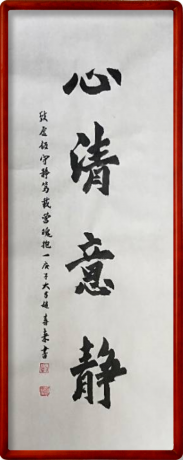 心清意静
致虚极守静笃载营魄抱一庚子大雪後喜来书